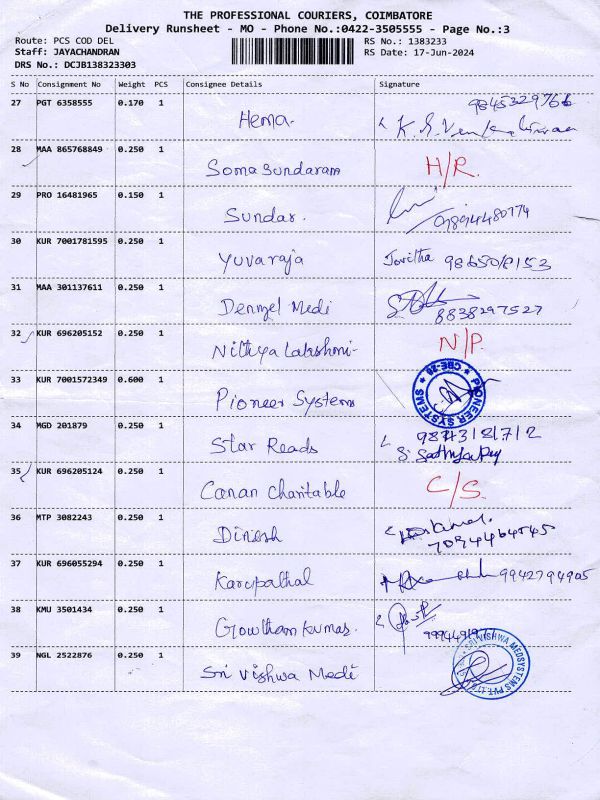 THE PROFESSIONAL COURIERS, COIMBATORE
Delivery Runsheet - MO - Phone No.:0422-3505555 - Page No.:3
Route: PCS COD DEL
Staff: JAYACHANDRAN
DRS No.: DCJB138323303
RS No.: 1383233
RS Date: 17-Jun-2024
S No Consignment No Weight PCS Consignee Details Signature
27 PGT 6358555 0.170 1 Hema. 9845329766
28 MAA 865768849 0.250 1 Somasundaram H/R.
29 PRO 16481965 0.150 1 Sundar.
30 KUR 7001781595 0.250 1 Yuvaraja Jovitha
31 MAA 301137611 0.250 1 Denzel Medi 8838297527
32 KUR 696205152 0.250 1 Nithya Lakshmi- N/P.
33 KUR 7001572349 0.600 1 Pioneer Systems PIONEER SYSTEMS * CBE-28 *
34 MGD 201879 0.250 1 Star Reads
35 KUR 696205124 0.250 1 Canan Charitable C/S.
36 MTP 3082243 0.250 1 Dinesh
37 KUR 696055294 0.250 1 Karupathal 9942794905
38 KMU 3501434 0.250 1 Gowtham kumar.
39 NGL 2522876 0.250 1 Sri Vishwa Medi SRI VISHWA MEDSYSTEMS PVT. LTD